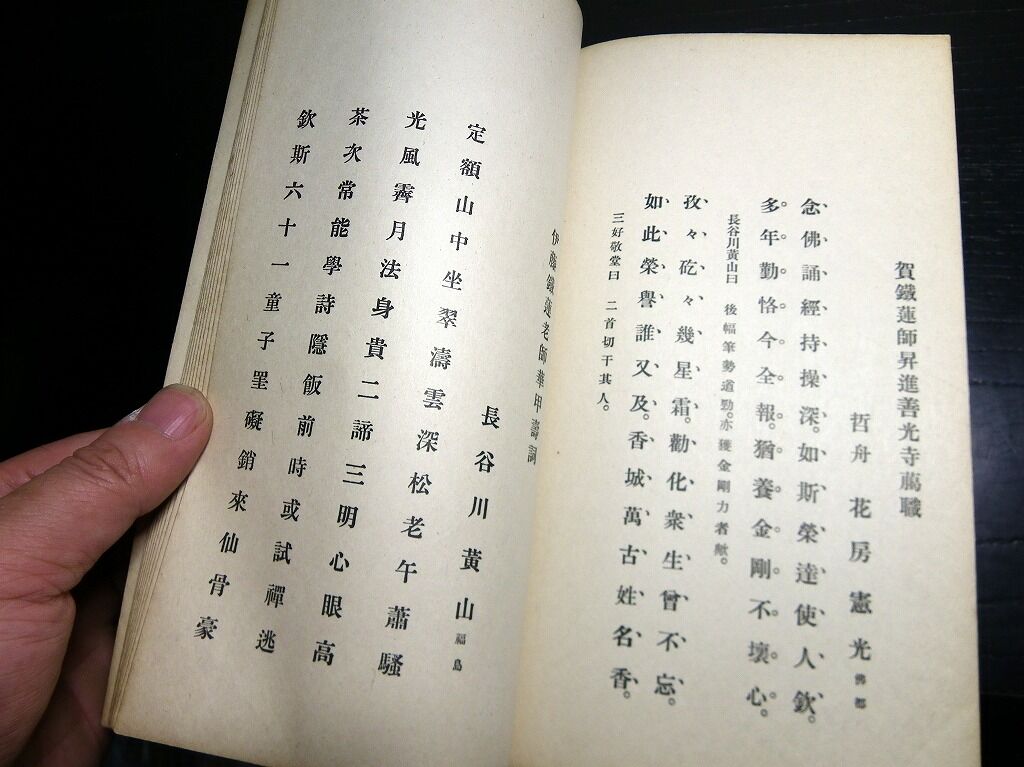 賀鐵蓮師昇進善光寺﨟職
哲舟 花房憲光 佛都
念佛誦經持操深。如斯榮達使人欽。
多年勤恪今全報。猶養金剛不壞心。
長谷川黃山曰 後幅筆勢遒勁。亦獲金剛力者歟。
孜々矻々幾星霜。勸化衆生曾不忘。
如此榮譽誰又及。香城萬古姓名香。
三好敬堂曰 二首切干其人。
伊藤鐵蓮老師華甲壽詞
長谷川黃山 福島
定額山中坐翠濤雲深松老午蕭騷
光風霽月法身貴二諦三明心眼高
茶次常能學詩隱飯前時或試禪逃
欽斯六十一童子罣礙銷來仙骨豪